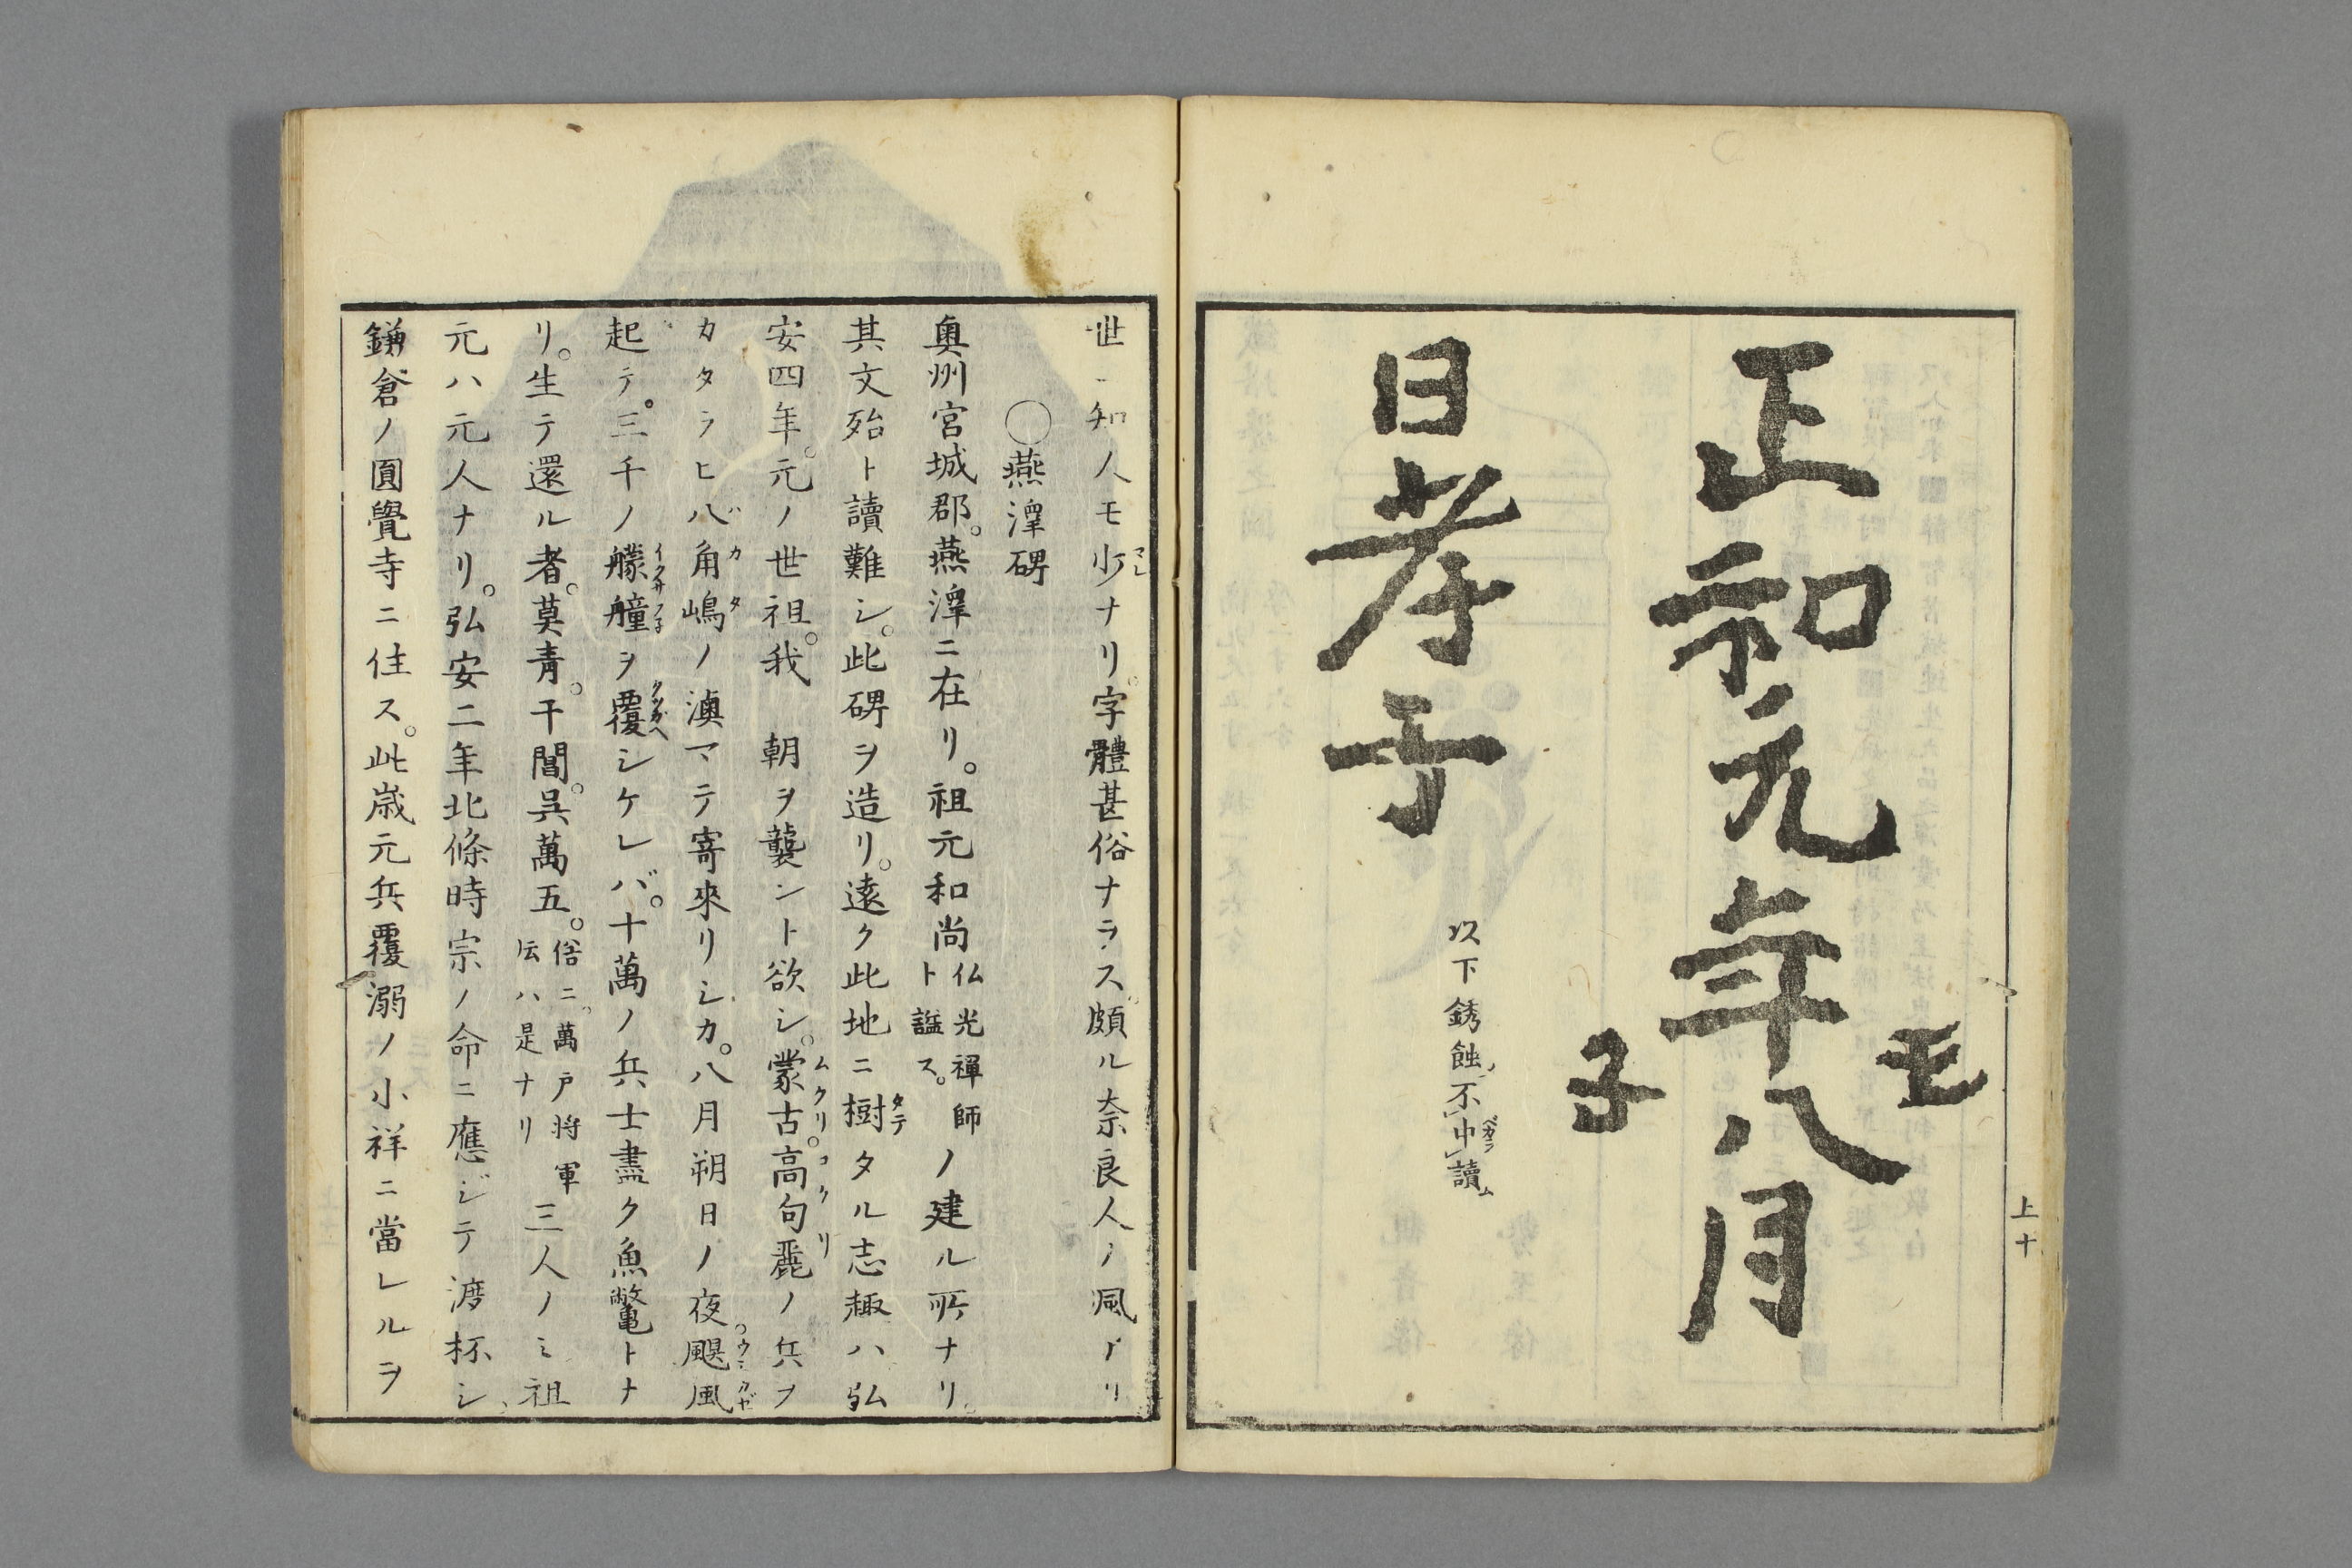 正和元年八月
壬
子
日孝子
以下銹蝕ノ不中讀
上十
世ニ知人モ少ナリ。字體甚俗ナラス頗ル奈良人ノ風アリ
○燕澤碑
奥州宮城郡。燕澤ニ在リ。祖元和尚仏光禪師ト謚ス。ノ建ル所ナリ
其文殆ト讀難シ。此碑ヲ造リ。遠ク此地ニ樹タル志趣ハ弘
安四年。元ノ世祖。我 朝ヲ襲ント欲シ。蒙古。高句麗ノ兵ヲ
カタラヒ八角嶋ノ澳マテ寄來リシカ。八月朔日ノ夜。颶風
起テ。三千ノ艨艟ヲ覆シケレバ。十萬ノ兵士盡ク魚鼈トナ
リ。生テ還ル者。莫青。干閶。呉萬五。俗ニ。萬戸将軍伝ハ是ナリ三人ノミ祖
元ハ元人ナリ。弘安二年北條時宗ノ命ニ應ジテ渡杯シ
鎌倉ノ圓覺寺ニ住ス。此歳元兵覆溺ノ小祥ニ當レルヲ